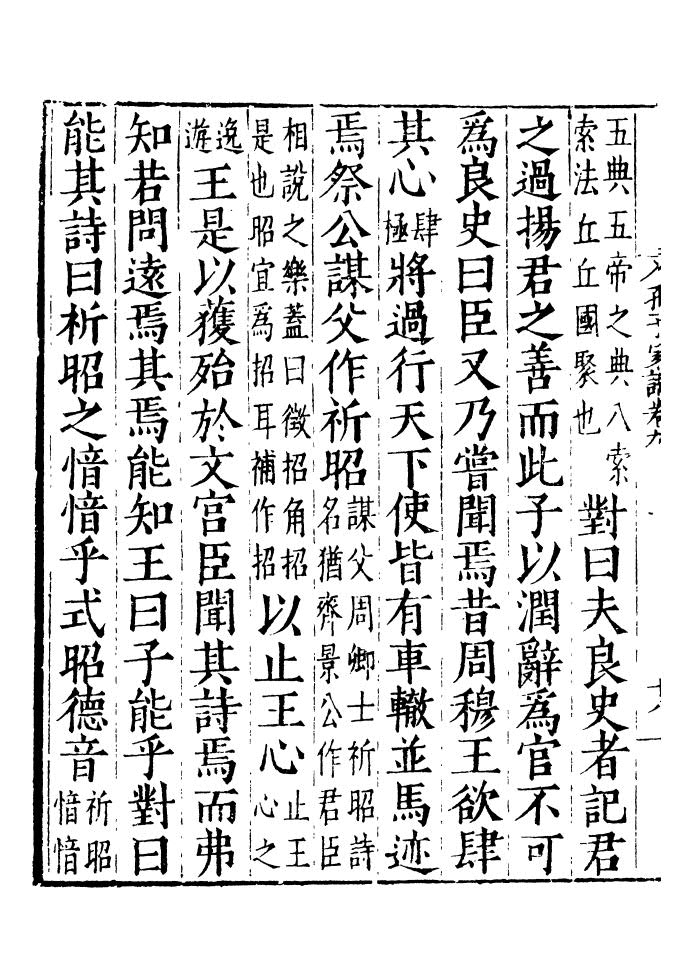 五典五帝之典八索索法丘丘國聚也對曰夫良史者記君
之過揚君之善而此子以潤辭爲官不可
爲良史曰臣又乃嘗聞焉昔周穆王欲肆
其心肆極將過行天下使皆有車轍並馬迹
焉祭公謀父作祈昭謀父周卿士祈昭詩名猶齊景公作君臣
相說之樂蓋曰徵招角招是也昭宜爲招耳補作招以止王心止王心之
逸遊王是以獲殆於文宫臣聞其詩焉而弗
知若問遠焉其焉能知王曰子能乎對曰
能其詩曰祈昭之愔愔乎式昭德音祈昭愔愔